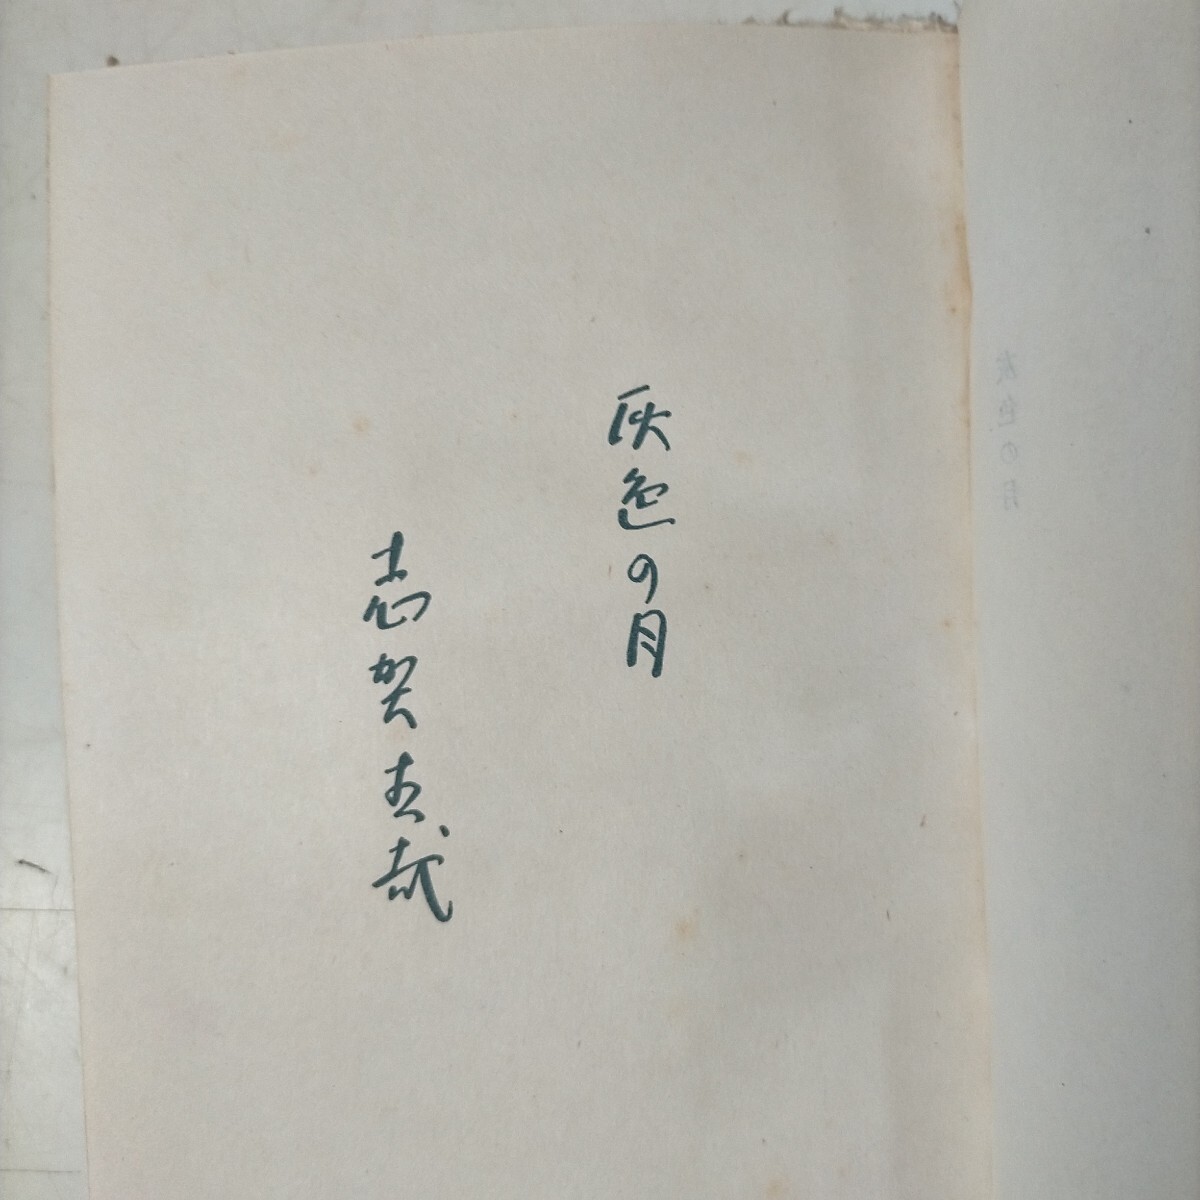 灰色の月
志賀直哉
灰色の月